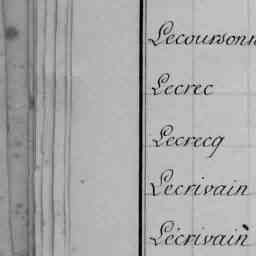 Lecoursonn
Lecrec
Lecrecq
Lecrivain
Lécrivain